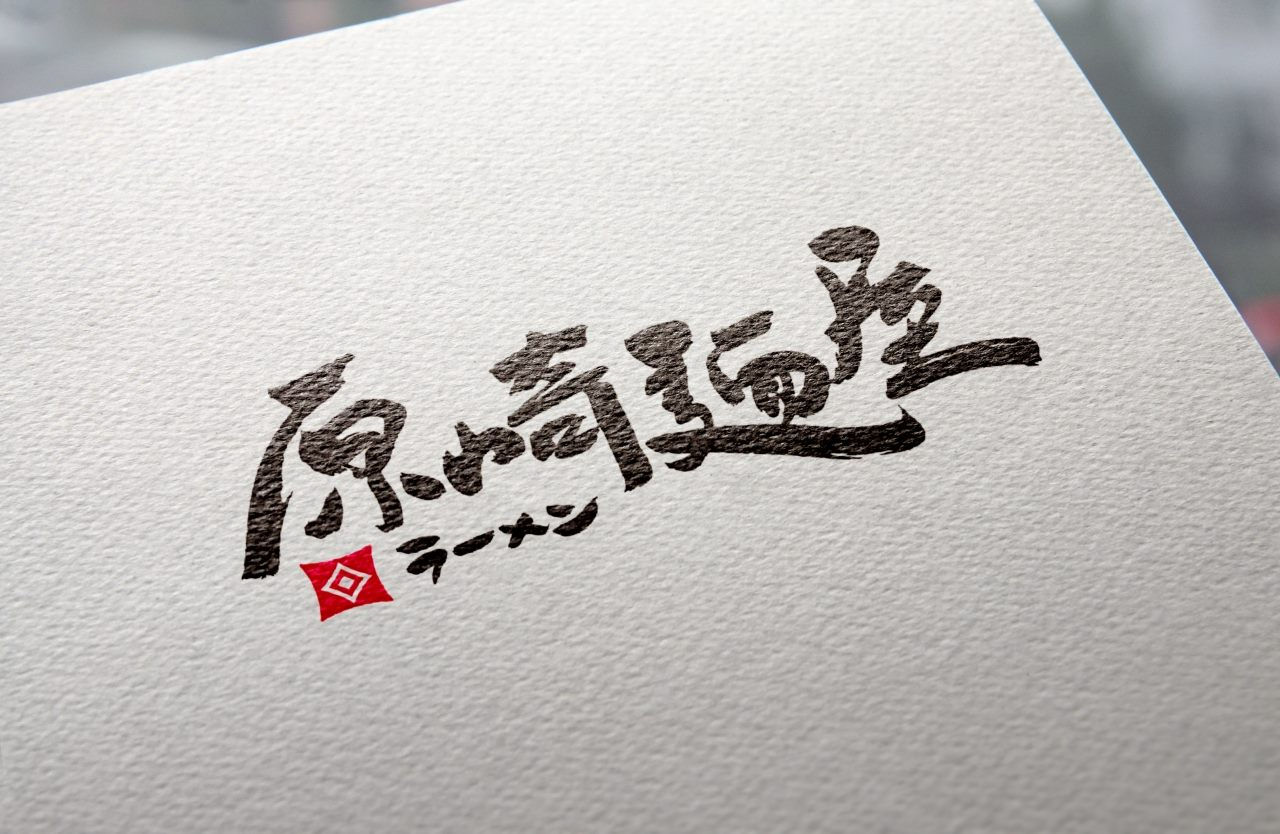 原崎麺屋
ラーメン